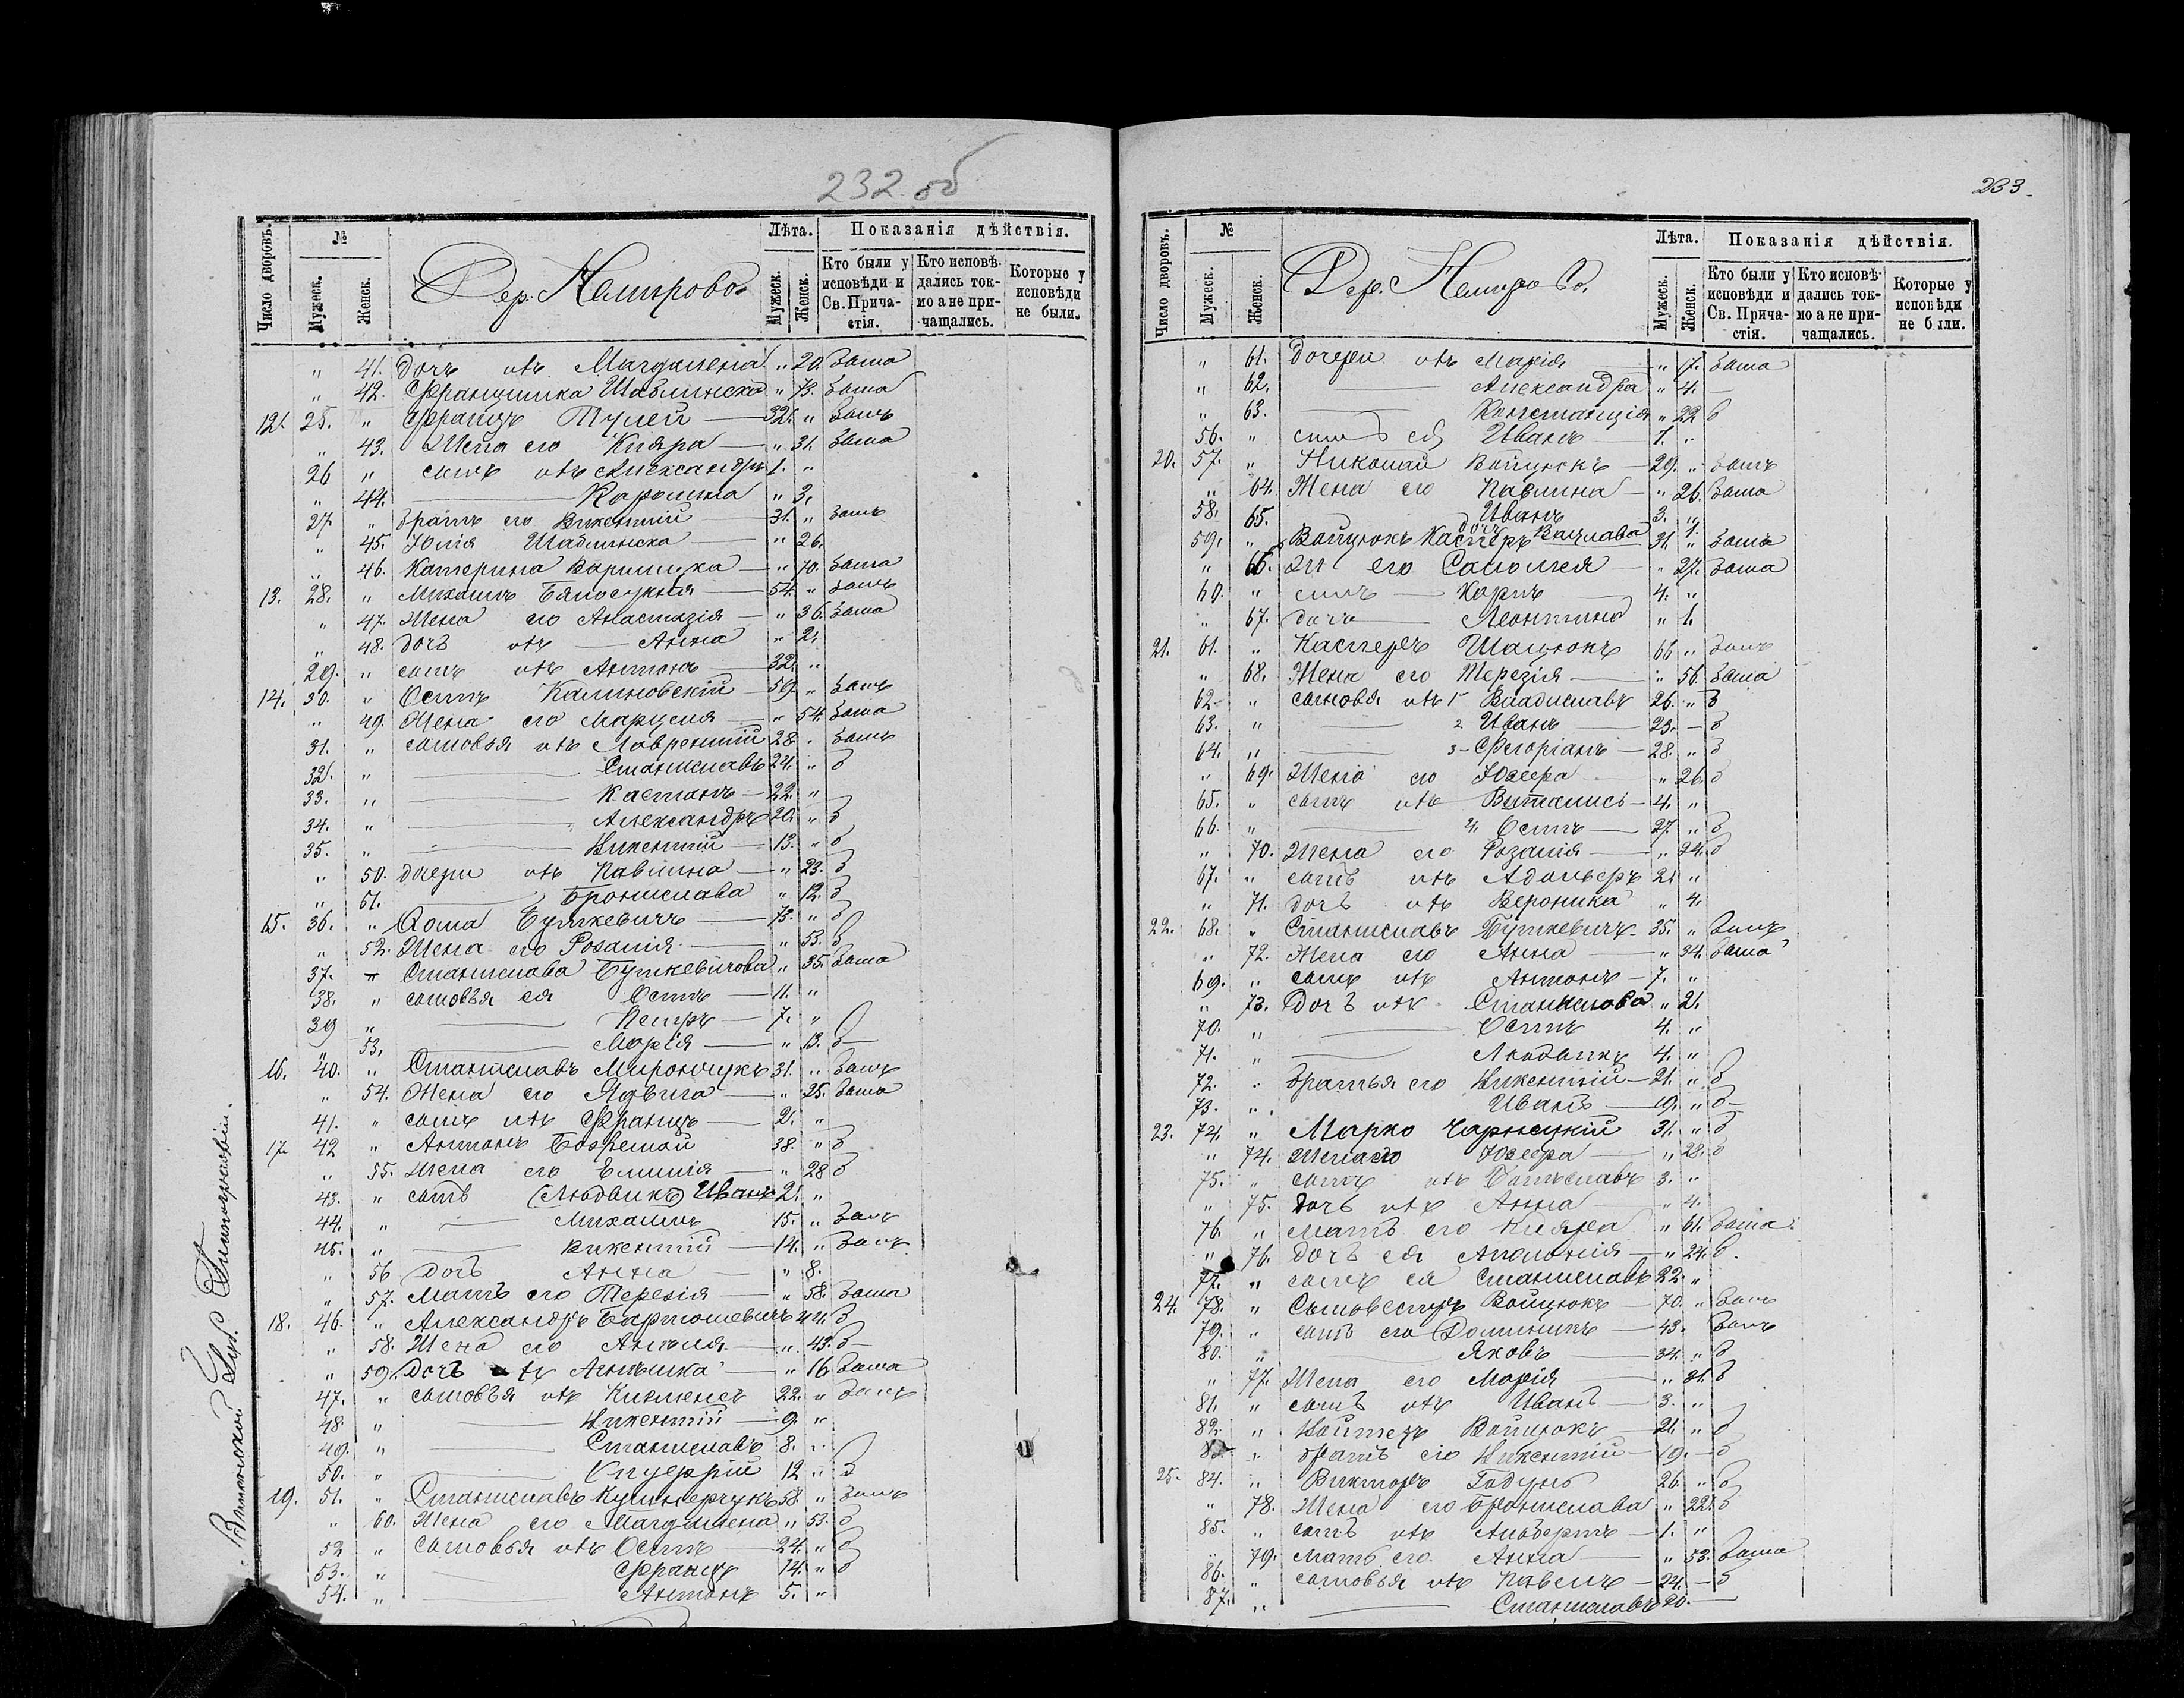 232 об
Число дворовъ.
№
Мужеск.
Женск.
Дер. Немирово.
Лѣта.
Мужеск.
Женск.
Показанія дѣйствія.
Кто были у исповѣди и Св. Причастія.
Кто исповѣдались токмо а не причащались.
Которые у исповѣди не были.
" 41. Дочь ихъ Магдалена " 20. была
" 42. Францишка Шаблинска " 73. была
12. 25. " Францъ Тулей 32. " былъ
" 43. Жена его Кляра " 31. была
26 " сынъ ихъ Александръ 1. "
" 44. Каролина " 3.
27. " братъ его Викентій 31. " былъ
" 45. Юлія Шаблинска " 26.
" 46. Катерина " 70. была
13. 28. " Михаилъ 54. " былъ
" 47. Жена его Анастазія " 36. была
" 48. Дочь ихъ Анна " 2.
29. " сынъ ихъ Антонъ 22. "
14. 30. " Осипъ Калиновскій 59. " былъ
" 49. Жена его Марцеля " 54. была
31. " сыновья ихъ Лаврентій 28. " былъ
32. " Станиславъ 24. " б
33. " Кастанъ 22. "
34. " Александръ 20. " б
35. " Викентій 13. " б
" 50. дочери ихъ Павлина " 23. б
" 51. Бронислава " 12. б
15. 36. " Ѳома Буткевичъ 73. " б
" 52. Жена его Розалія " 53. б
37. " Станислава Буткевичова " 35. была
38. " сыновья ея Осипъ 11. "
39 " Петръ 7. "
" 53. Марія " 13. б
16. 40. " Станиславъ Мирончукъ 31. " былъ
" 54. Жена его Ядвига " 25. была
41. " сынъ ихъ Францъ 2. "
17. 42 " Антонъ 38. " б
" 55. Жена его Емилія " 28 б
43. " сынъ (Людвикъ) Иванъ 2. "
44. " Михаилъ 15. " былъ
45. " Викентій 14. " былъ
" 56 Дочь Анна " 8.
" 57. Мать его Терезія " 58. была
18. 46. " Александръ Бартошевичъ 44. б
" 58. Жена его Анеля " 43. б
" 59. Дочь ихъ Агнѣшка " 16. была
47. " сыновъя ихъ Клеменсъ 22. " былъ
48 " Викентій 9. "
49. " Станиславъ 8. "
50. " 12 " б
19. 51. " Станиславъ Кушнерчукъ 58. " былъ
" 60. Жена его Магдалена " 53. б
52 " Сыновья ихъ Осипъ 24. " б
53. " Францъ 14. " б
54. " Антонъ 5. "
233.
Число дворовъ.
№
Мужеск.
Женск.
Дер. Немирово.
Лѣта.
Мужеск.
Женск.
Показанія дѣйствія.
Кто были у исповѣди и Св. Причастія.
Кто исповѣдались токмо а не причащались.
Которые у исповѣди не были.
" 61. Дочери ихъ Марія " 7. была
" 62. Александра " 4. —
" 63. Констанція " 22 б
56. " сынъ ея Иванъ 1. "
20. 57. " Николай Войцюкъ 29. " былъ
" 64. Жена его Павлина " 26. была
58. 65. Иванъ 3. "
дочь Вацлава 1.
59. " Войцюкъ Касперъ 31. " былъ
" 66. Ж его Саломея " 27. была
60. " сынъ Карлъ 4. "
" 67. дочь Леонтина " 1.
21. 61. " Касперъ Шацюкъ 66 " былъ
" 68. Жена его Терезія " 56. была
62. " сыновя ихъ 1 Владиславъ 26. " б
63. " 2 Иванъ 23. — б
64. " 3 Флоріанъ 28. " б
" 69. Жена его Юзефа " 26. б
65. " сынъ ихъ 4. "
66. " 4. Осипъ 27. " б
" 70. Жена его Розалія " 24. б
67. " сынъ ихъ Адольфъ 2. "
" 71. дочь ихъ Вероника " 4.
22. 68. " Станиславъ Буткевичъ 35. " былъ
" 72. Жена его Анна " 34. была
69. " сынъ ихъ Антонъ 7. "
" 73. Дочь ихъ Станислова " 2.
70. " Осипъ 4. "
71. " Людвикъ 4. "
72. " братья его Викентій 21. " б
73. " Иванъ 19. " б
23. 74. " Марко Чарнецкій 31. " б
" 74. Жена его Юзефа " 28. б
75. " сынъ ихъ Болеславъ 3. "
" 75. Дочь ихъ Анна " 4.
76. " Мать его Кляра " 61. была
" 76. Дочь ея Аполонія " 24. б.
77. " сынъ ея Станиславъ 22. "
24. 78. " Сильвестръ Войцюкъ 70. " былъ
79. " сынъ его Доминикъ 43. былъ
80. " Яковъ 34. " б
" 77. Жена его Марія " 31. б
81. " сынъ ихъ Иванъ 3. "
82. " Войтехъ Войцюкъ 21. " б
83. " братъ его Викентій 19. — б
25. 84. " Викторъ Годунъ 26. " б
" 78. Жена его Бронислава " 22. б
85. " сынъ ихъ Альбертъ 1. "
" 79. Мать его Анна " 53. была
86. " сыновья ихъ Павелъ 24. — б
87. " Станиславъ 20. —